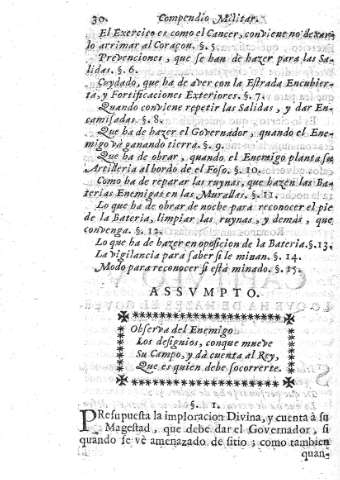 30. Compendio Militar.
El Exercito es como el Cancer, conviene no dexar-
lo arrimar al Coraçon. §. 5.
Prevenciones, que se han de hazer para las Sa-
lidas. §. 6.
Cuydado, que ha de aver con la Estrada Encubier-
ta, y Fortificaciones Exteriores. §. 7.
Quando conviene repetir las Salidas, y dar En-
camisadas. §. 8.
Que ha de hazer el Governador, quando el Ene-
migo và ganando tierra. §. 9.
Que ha de obrar, quando el Enemigo planta su
Artilleria al bordo de el Foso. §. 10.
Como ha de reparar las ruynas, que hazen las Ba-
terias Enemigas en las Murallas. §. 11.
Lo que ha de obrar de noche para reconocer el pie
de la Bateria, limpiar las ruynas, y demás, que
convenga. §. 12.
Lo que ha de hazer en oposicion de la Bateria. §. 13.
La vigilancia para saber si le minan. §. 14.
Modo para reconocer si està minado. §. 15.
ASSVMPTO.
Observa del Enemigo
Los designios, con que mueve
Su Campo, y dà cuenta al Rey,
Que es quien debe socorrerte.
§. 1.
PResupuesta la imploracion Divina, y cuenta à su
Magestad, que debe dar el Governador, si
quando se vè amenazado de sitio; como tambien
quan-